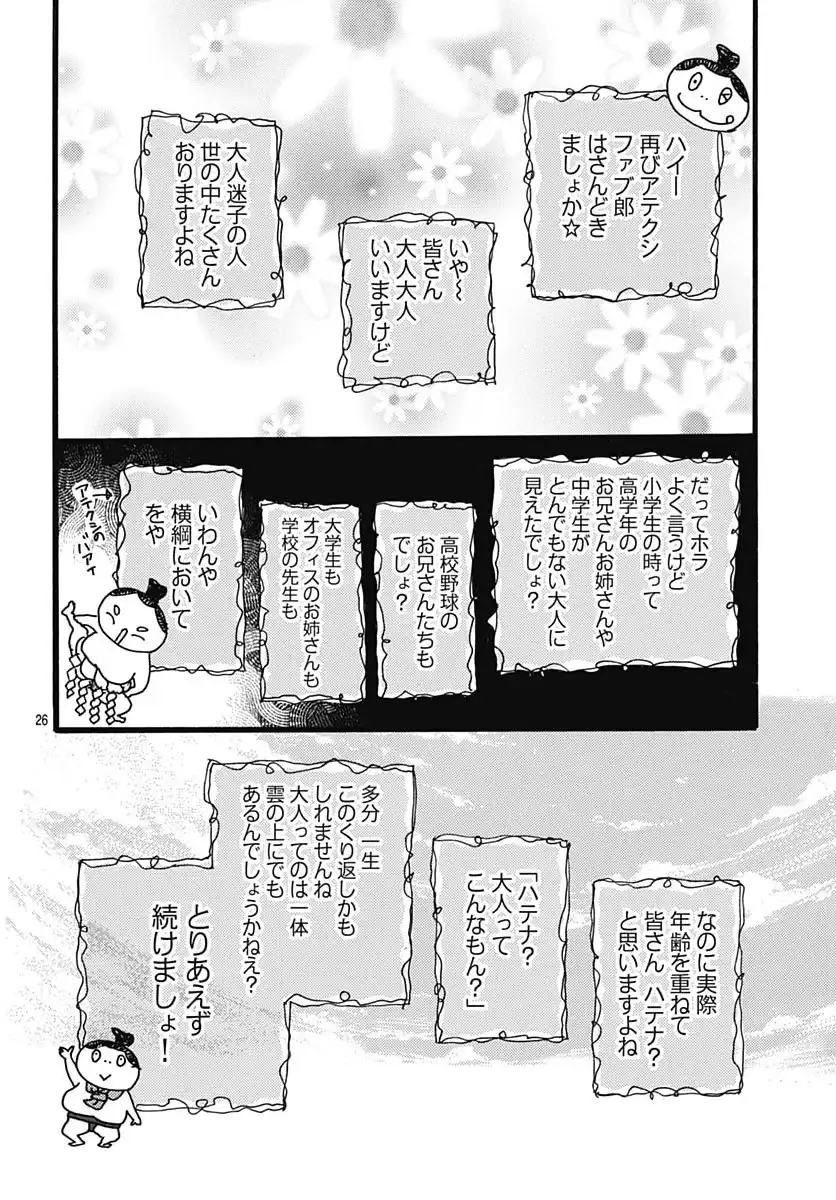 ハイー
再びアテクシ
ファブ郎
はさんどき
ましょか☆
いや〜
皆さん
大人大人
いいますけど
大人迷子の人
世の中たくさん
おりますよね
だってホラ
よく言うけど
小学生の時って
高学年の
お兄さんお姉さんや
中学生が
とんでもない大人に
見えたでしょ？
高校野球の
お兄さんたちも
でしょ？
大学生も
オフィスのお姉さんも
学校の先生も
いわんや
横綱において
をや
アテクシの
バアイ
26
なのに実際
年齢を重ねて
皆さん ハテナ？
と思いますよね
「ハテナ？
大人って
こんなもん？」
多分 一生
このくり返しかも
しれませんね
大人ってのは一体
雲の上にでも
あるんでしょうかねえ？
とりあえず
続けましょ！